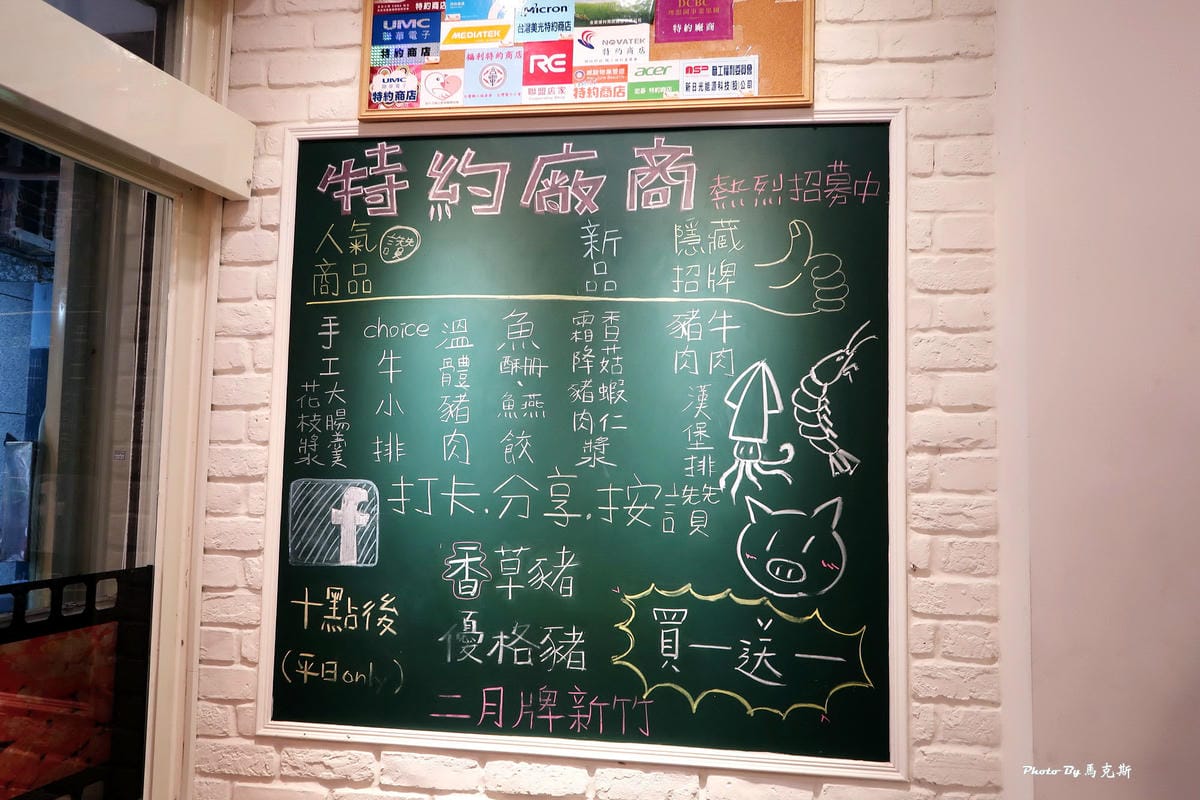 特約商店
UMC
聯華電子
特約商店
MEDIATEK
Micron
台灣美光特約商店
NOVATEK
特約商店
DCBC
特約廠商
UMC
特約商店
福利特約商店
RE
聯盟店家
特約商店
acer
宏碁 特約商店
NSP 職工福利委員會
新日光能源科技(股)公司
特約廠商 熱烈招募中
人氣商品 讚
新品
隱藏招牌
手工花枝漿 大腸羹
choice牛小排
溫體豬肉
魚酥冊、魚燕餃
霜降豬肉 香菇蝦仁漿
豬肉 牛肉 漢堡排
f 打卡.分享.按讚
香草豬
優格豬
十點後
(平日only)
買一送一
二月牌新竹
Photo By 馬克斯